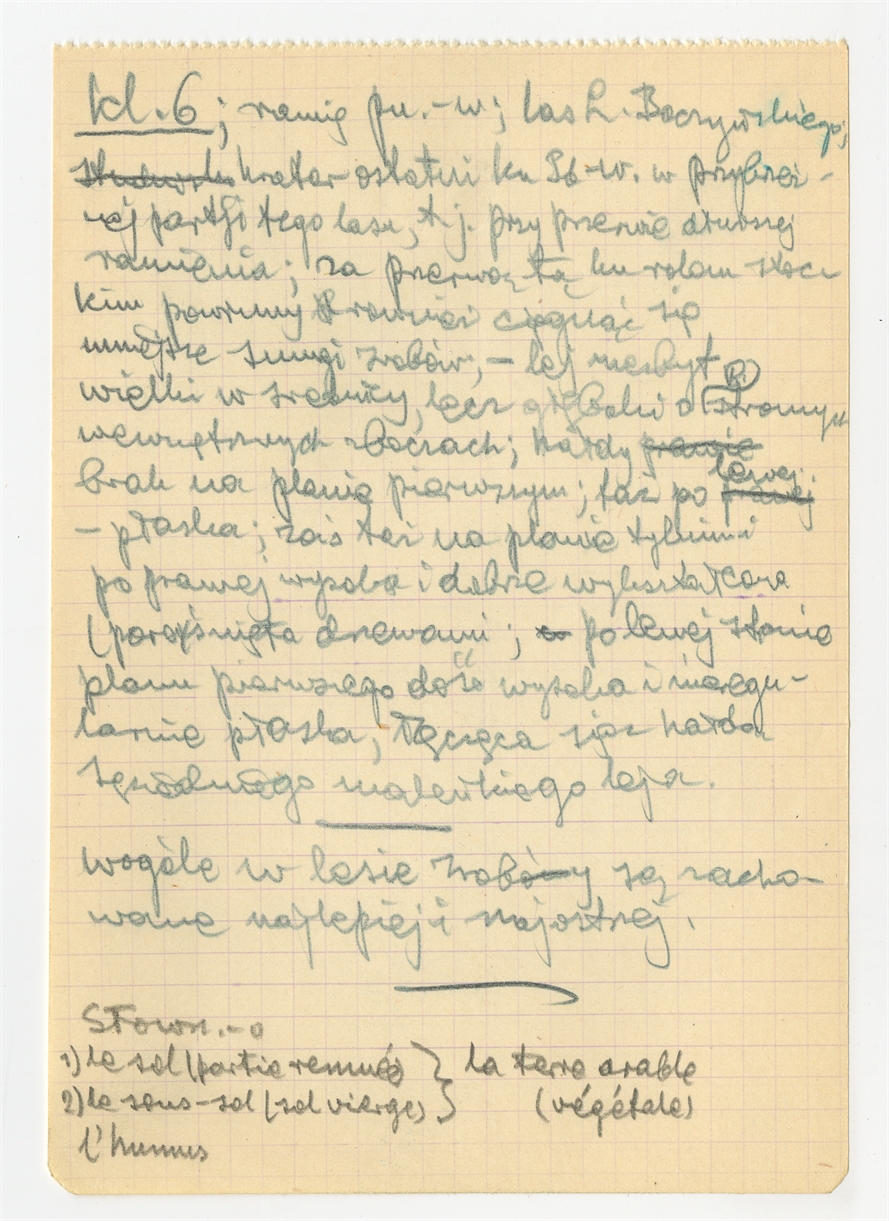 kl. 6; ramię pn.-w; las L. Boczywskiego;
krater ostatni ku Sb-w. w przybrzeż-
nej partji tego lasu, t.j. przy przerwie dłuższej
ramienia; za przerwą tą ku rolom stoc-
kim powinny również ciągnąć się
mniejsze smugi zrobów, – lej niezbyt
wielki w średnicy, lecz głęboki o stromych
wewnętrznych zboczach; hałdy prawie
brak na planie pierwszym; taż po lewej
– płaska; zaś też na planie tylnim i
po prawej wysoka i dobrze wykształcona
(porośnięta drzewami; po lewej stronie
planu pierwszego dość wysoka i nieregu-
larnie płaska, łącząca się z hałdą
sąsiedniego maleńkiego leja.
wogóle w lesie zroby są zacho-
wane najlepiej i najostrzej.
Słown.-o
1) le sol (partie remuée) } la terre arable
2) le sous-sol (sol vierge) } (végétale)
l'humus